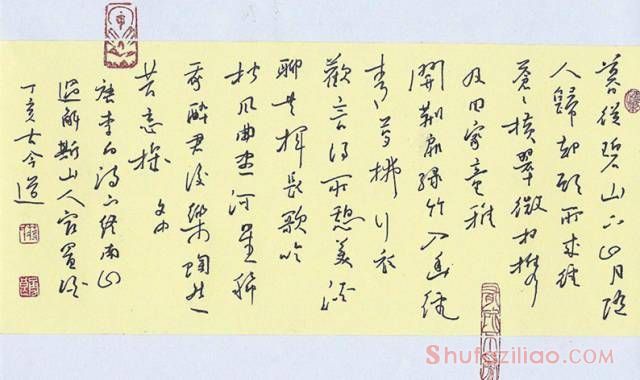 暮從碧山下山月隨
人歸却顧所來徑
蒼蒼橫翠微相攜
及田家童稚
開荊扉綠竹入幽徑
青蘿拂行衣
歡言得所憩美酒
聊共揮長歌吟
松風曲盡河星稀
我醉君復樂陶然
共忘機
唐李白詩下終南山
過斛斯山人宿置酒
丁亥古今道
Shufaziliao.com